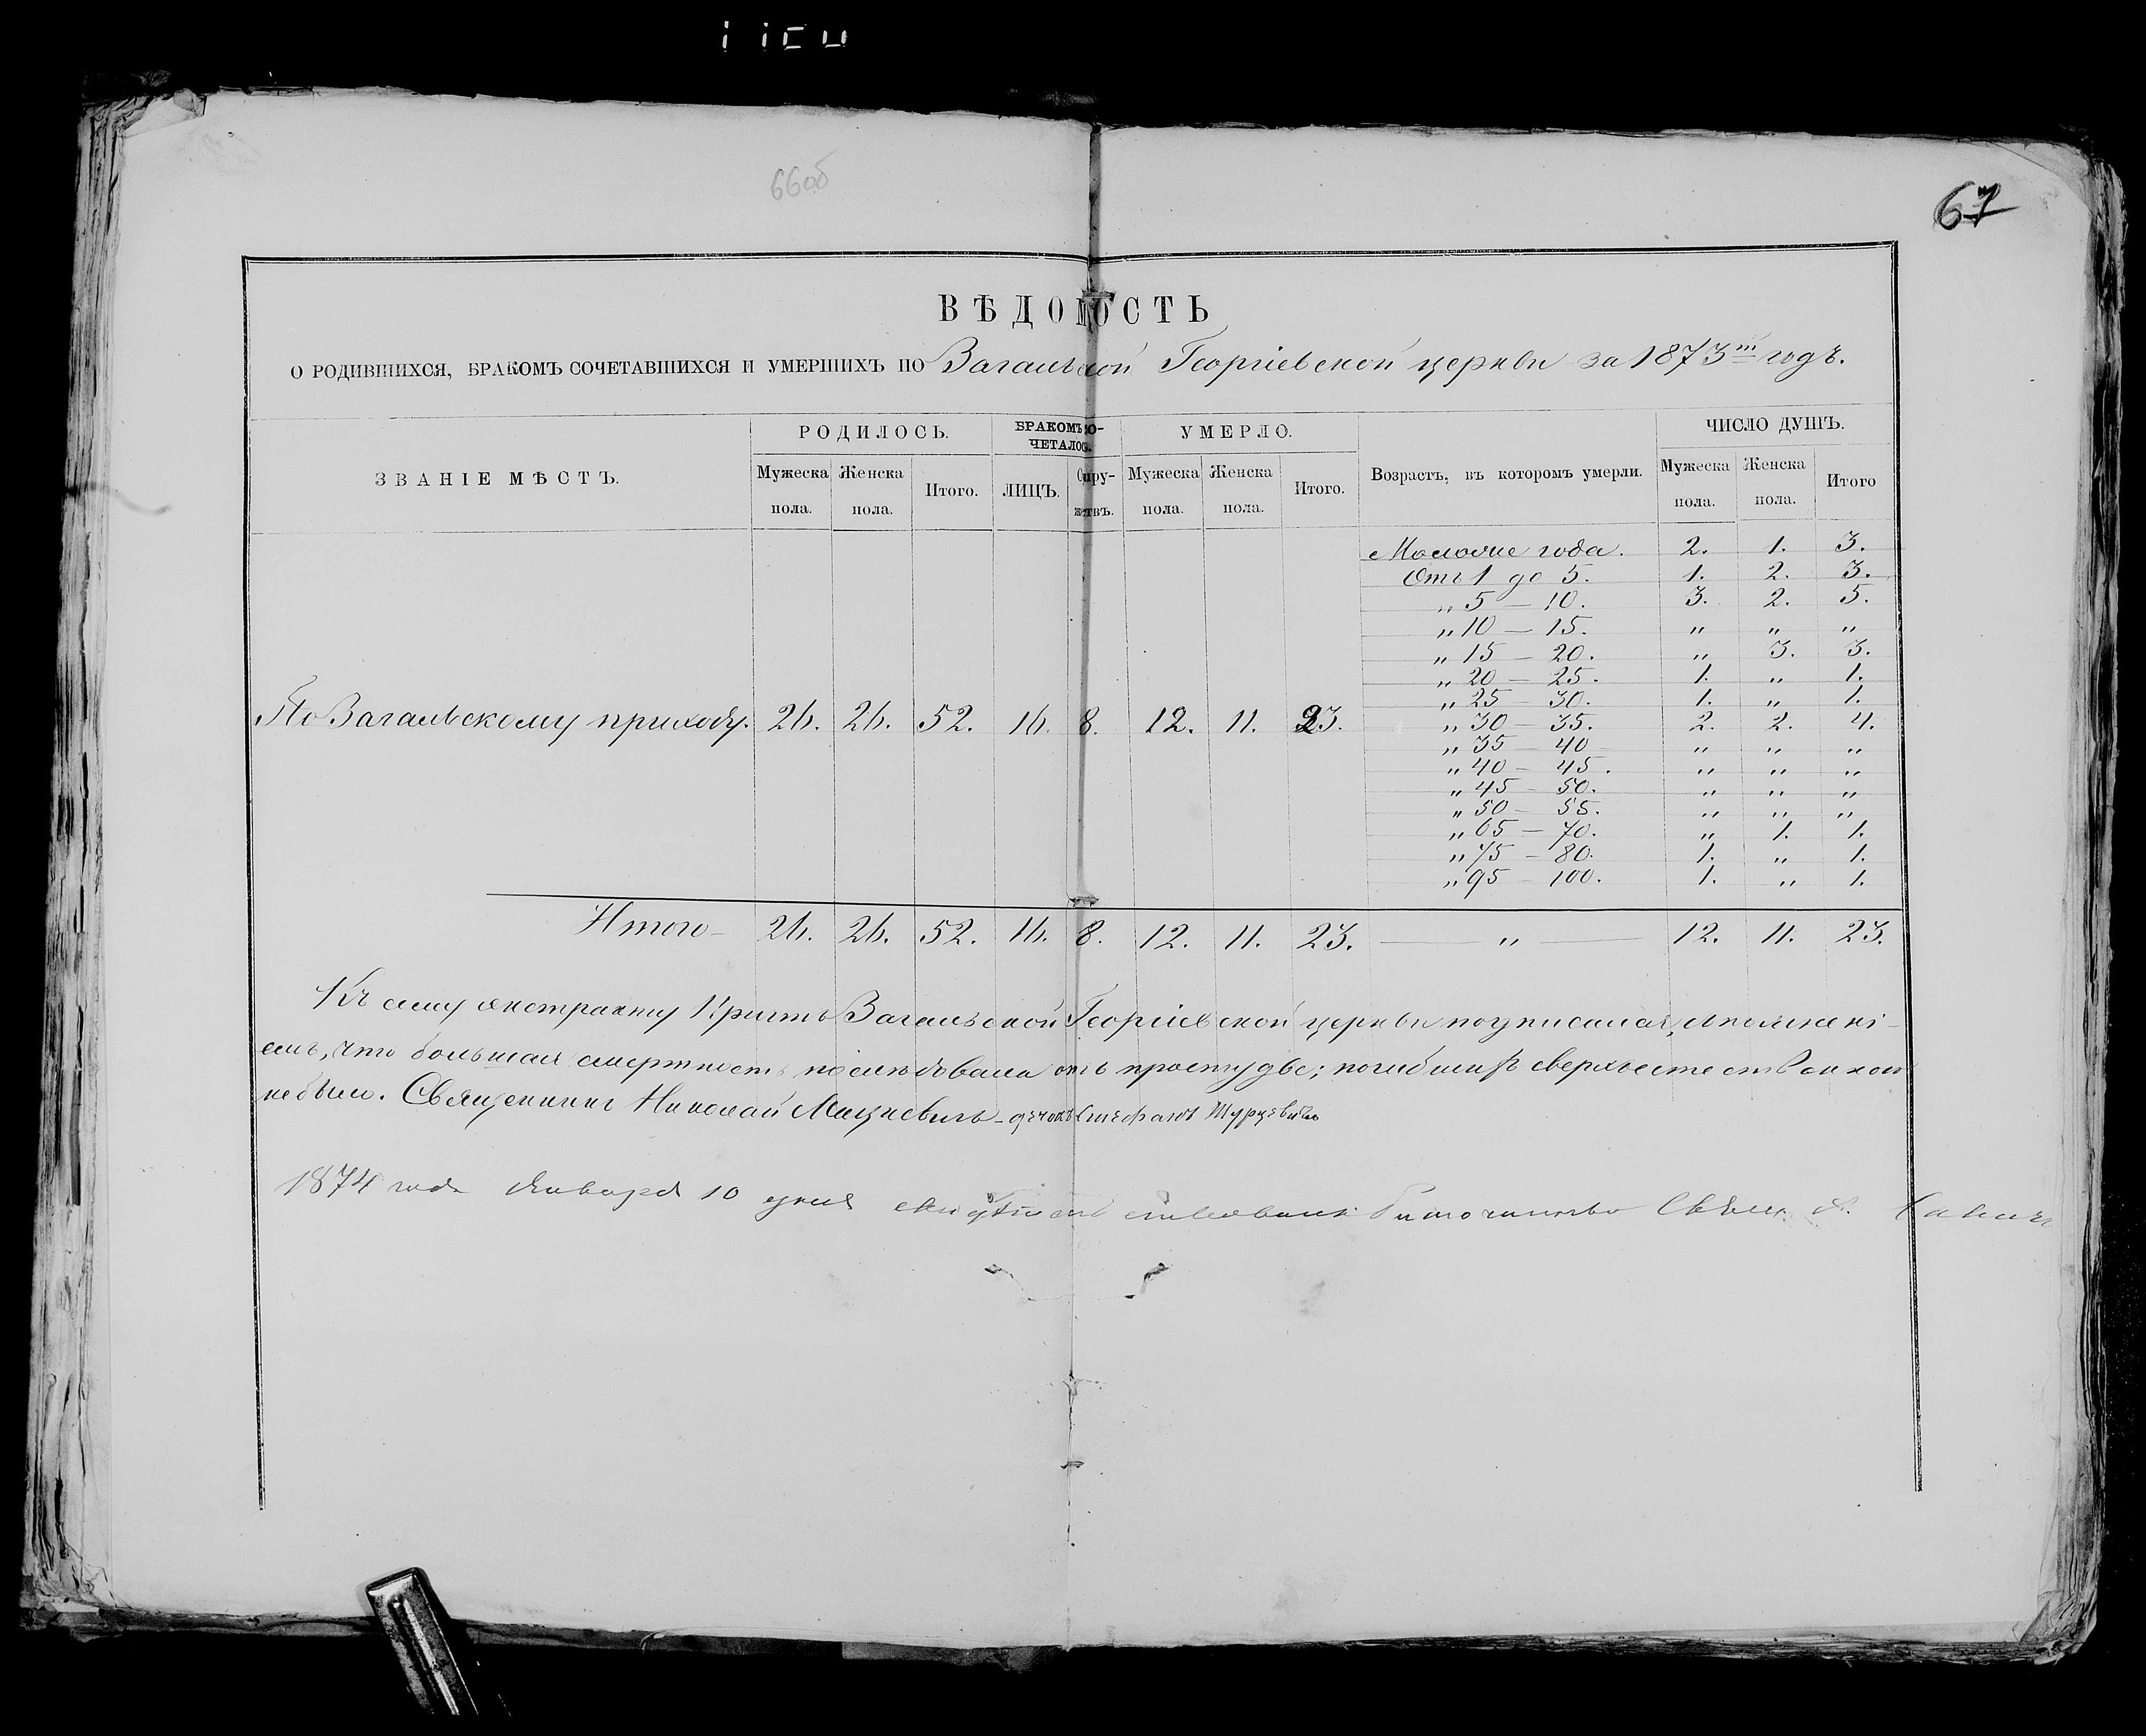 66об
67
ВѢДОМОСТЬ
О РОДИВШИХСЯ, БРАКОМЪ СОЧЕТАВШИХСЯ И УМЕРШИХЪ ПО Загальской Георгіевской церкви за 1873й годъ.
ЗВАНІЕ МѢСТЪ. РОДИЛОСЬ. БРАКОМЪ СО- УМЕРЛО. Возрастъ, въ которомъ умерли. ЧИСЛО ДУШЪ.
ЧЕТАЛОСЬ.
Мужеска Женска Итого. ЛИЦЪ. Супру- Мужеска Женска Итого. Мужеска Женска Итого
пола. пола. жествъ. пола. пола. пола. пола.
Молодые года. 2. 1. 3.
Отъ 1 до 5. 1. 2. 3.
„ 5 — 10. 3. 2. 5.
„ 10 — 15. „ „ „
„ 15 — 20. „ 3. 3.
„ 20 — 25. 1. „ 1.
„ 25 — 30. 1. „ 1.
По Загальскому приходу. 26. 26. 52. 16. 8. 12. 11. 23. „ 30 — 35. 2. 2. 4.
„ 35 — 40 „ „ „
„ 40 — 45. „ „ „
„ 45 — 50. „ „ „
„ 50 — 55. „ „ „
„ 65 — 70. „ 1. 1.
„ 75 — 80. 1. „ 1.
„ 95 — 100. 1. „ 1.
Итого — 26. 26. 52. 16. 8. 12. 11. 23. — „ — 12. 11. 23.
Къ сему экстракту Причтъ Загальской Георгіевской церкви подписался,
что большая смертность послѣдовала отъ простуды; погибшихъ
не было. Священникъ Николай Мацкевичъ – дьячокъ Стефанъ Турцевичъ
1874 года Января 10 дня Благочинный Свящ.